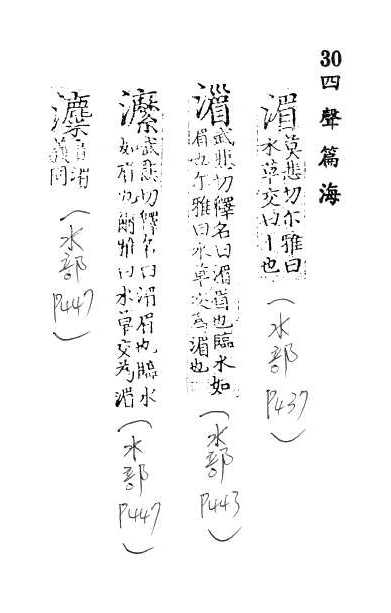 30 四聲篇海
湄 莫悲切尔雅曰
水草交曰丨也
(水部
P437)
湄 武悲切釋名曰湄眉也臨水如
眉也尔雅曰水草交為湄也
(水部
P443)
武悲切釋名曰湄眉也臨水
如眉也爾雅曰水草交為湄
(水部
P447)
音湄
義同
(水部
P447)